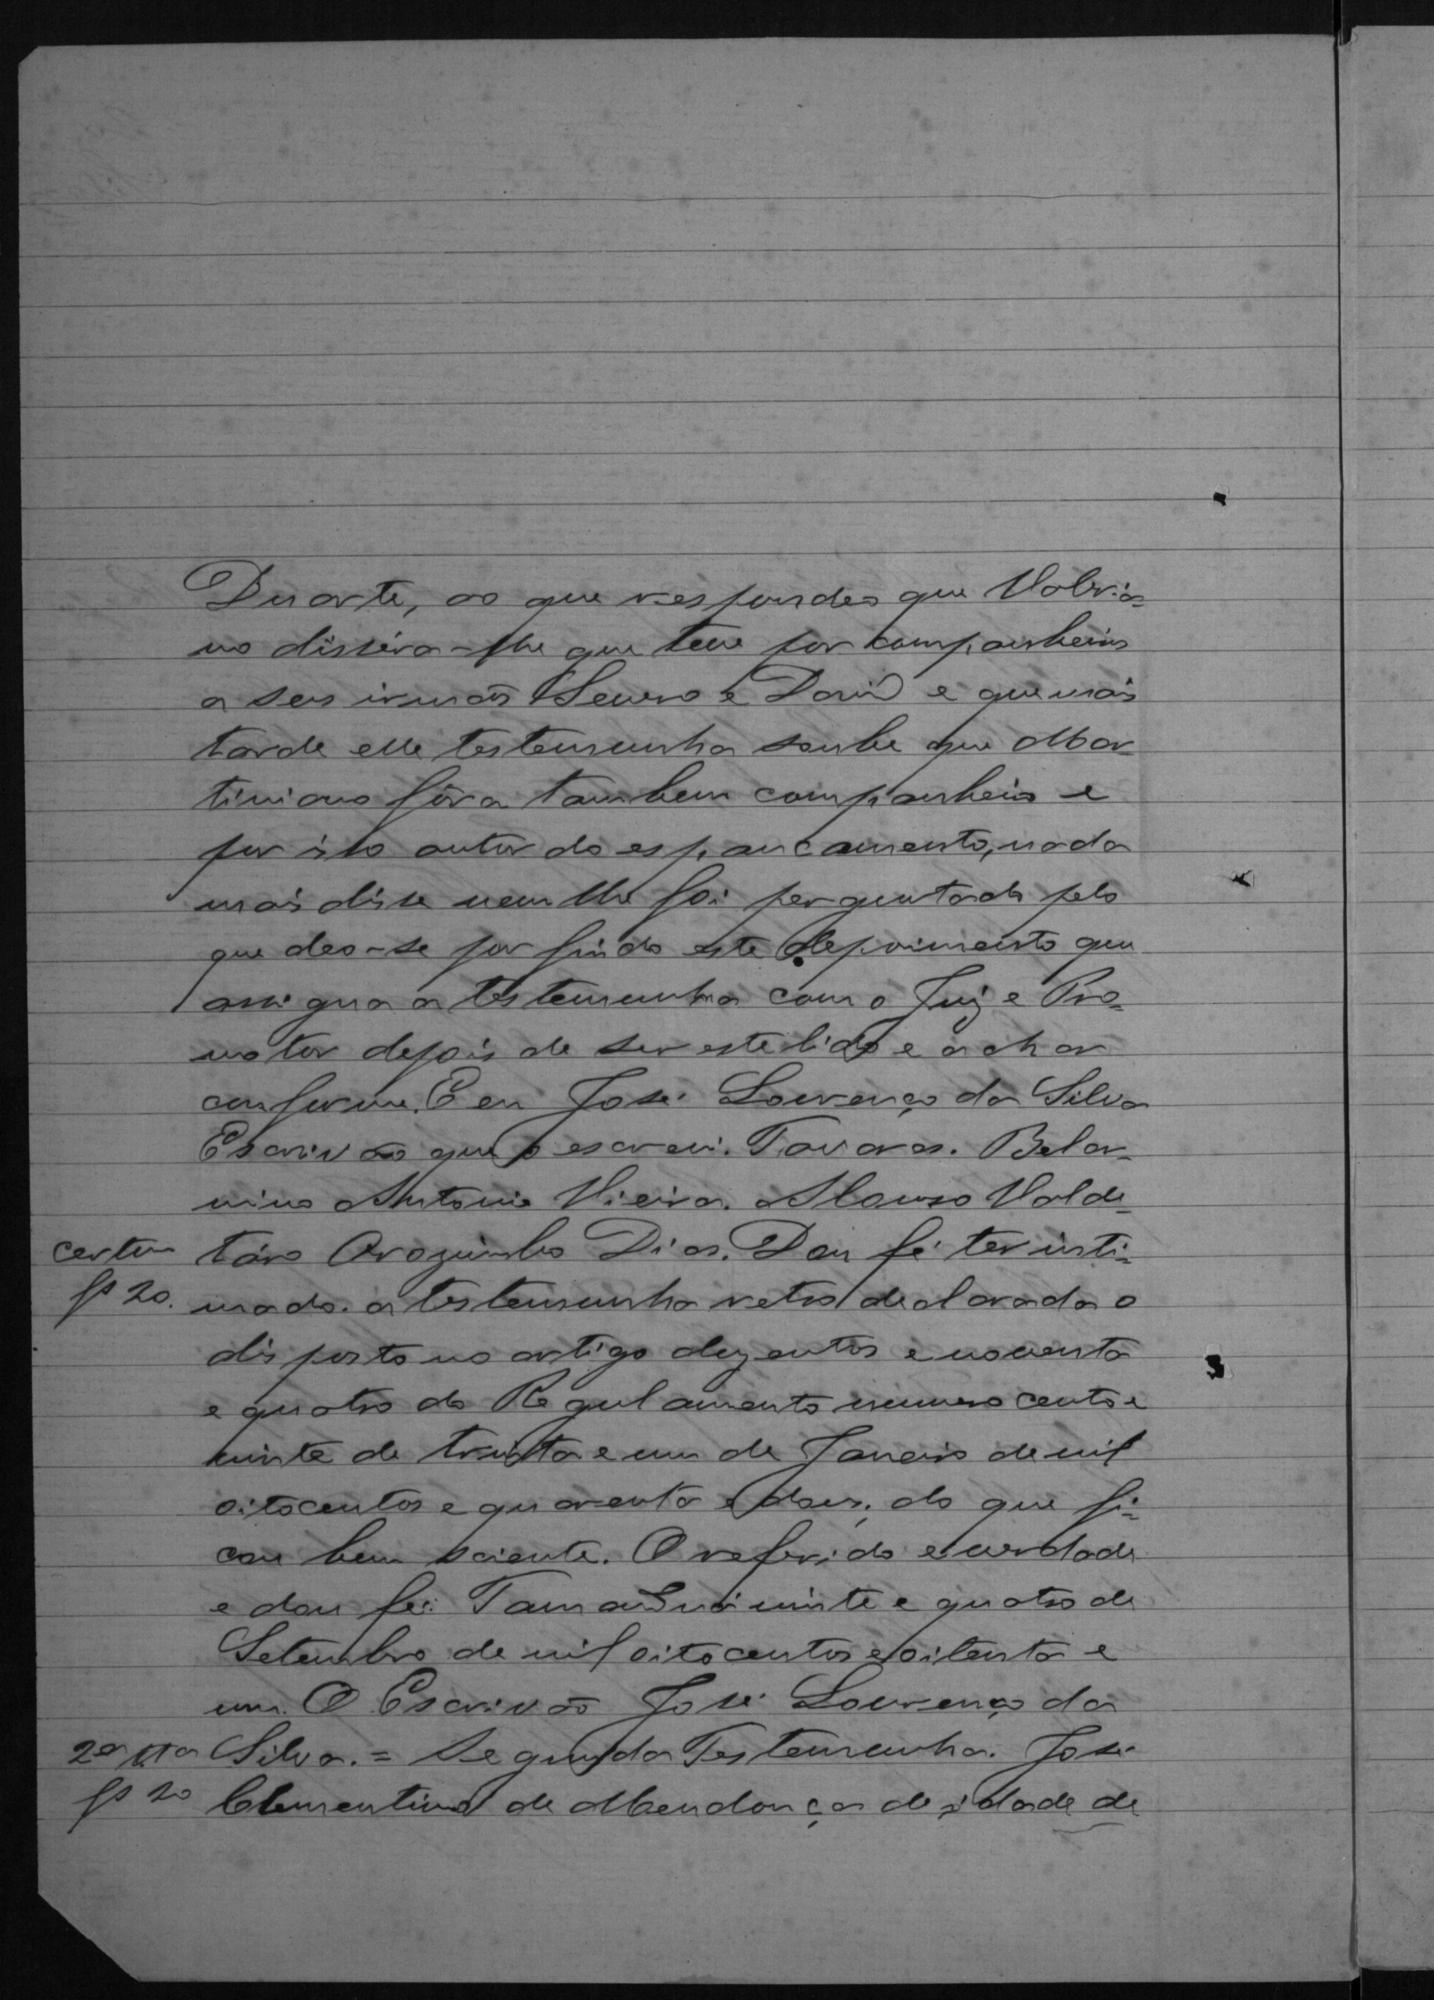 Duarte, ao que respondeo que Valeria=
no dissera-lhe que teve por companheiros
a seus irmãos Severo e David e que mais
tarde elle testemunha soube que Mar-
tiniano fôra tambem companheiro e
por isso autor do espancamento, nada
mais disse nem lhe foi perguntado pelo
que deo-se por findo este depoimento que
assigna a testemunha com o Juiz e Pro=
motor depois de ser este lido e achar
conforme. E eu José Lourenço da Silva
Escrivão que o escrevi. Tavares. Belar-
mino Antonio Vieira. Alonso Valde-
táro Orozimbo Dias. Dou fé ter inti=
certam
fs 20.
mado a testemunha retro declarada o
disposto no artigo duzentos e noventa
e quatro do Regulamento numero cento e
vinte de trinta e um de Janeiro de mil
oitocentos e quarenta e dous, do que fi=
cou bem sciente. O referido e verdade
e dou fé. Tamanduá vinte e quatro de
Setembro de mil oitocentos e oitenta e
um. O Escrivão José Lourenço da
2a tta
fs 20
Silva. = Segunda Testemunha. José
Clementino de Mendonça de idade de